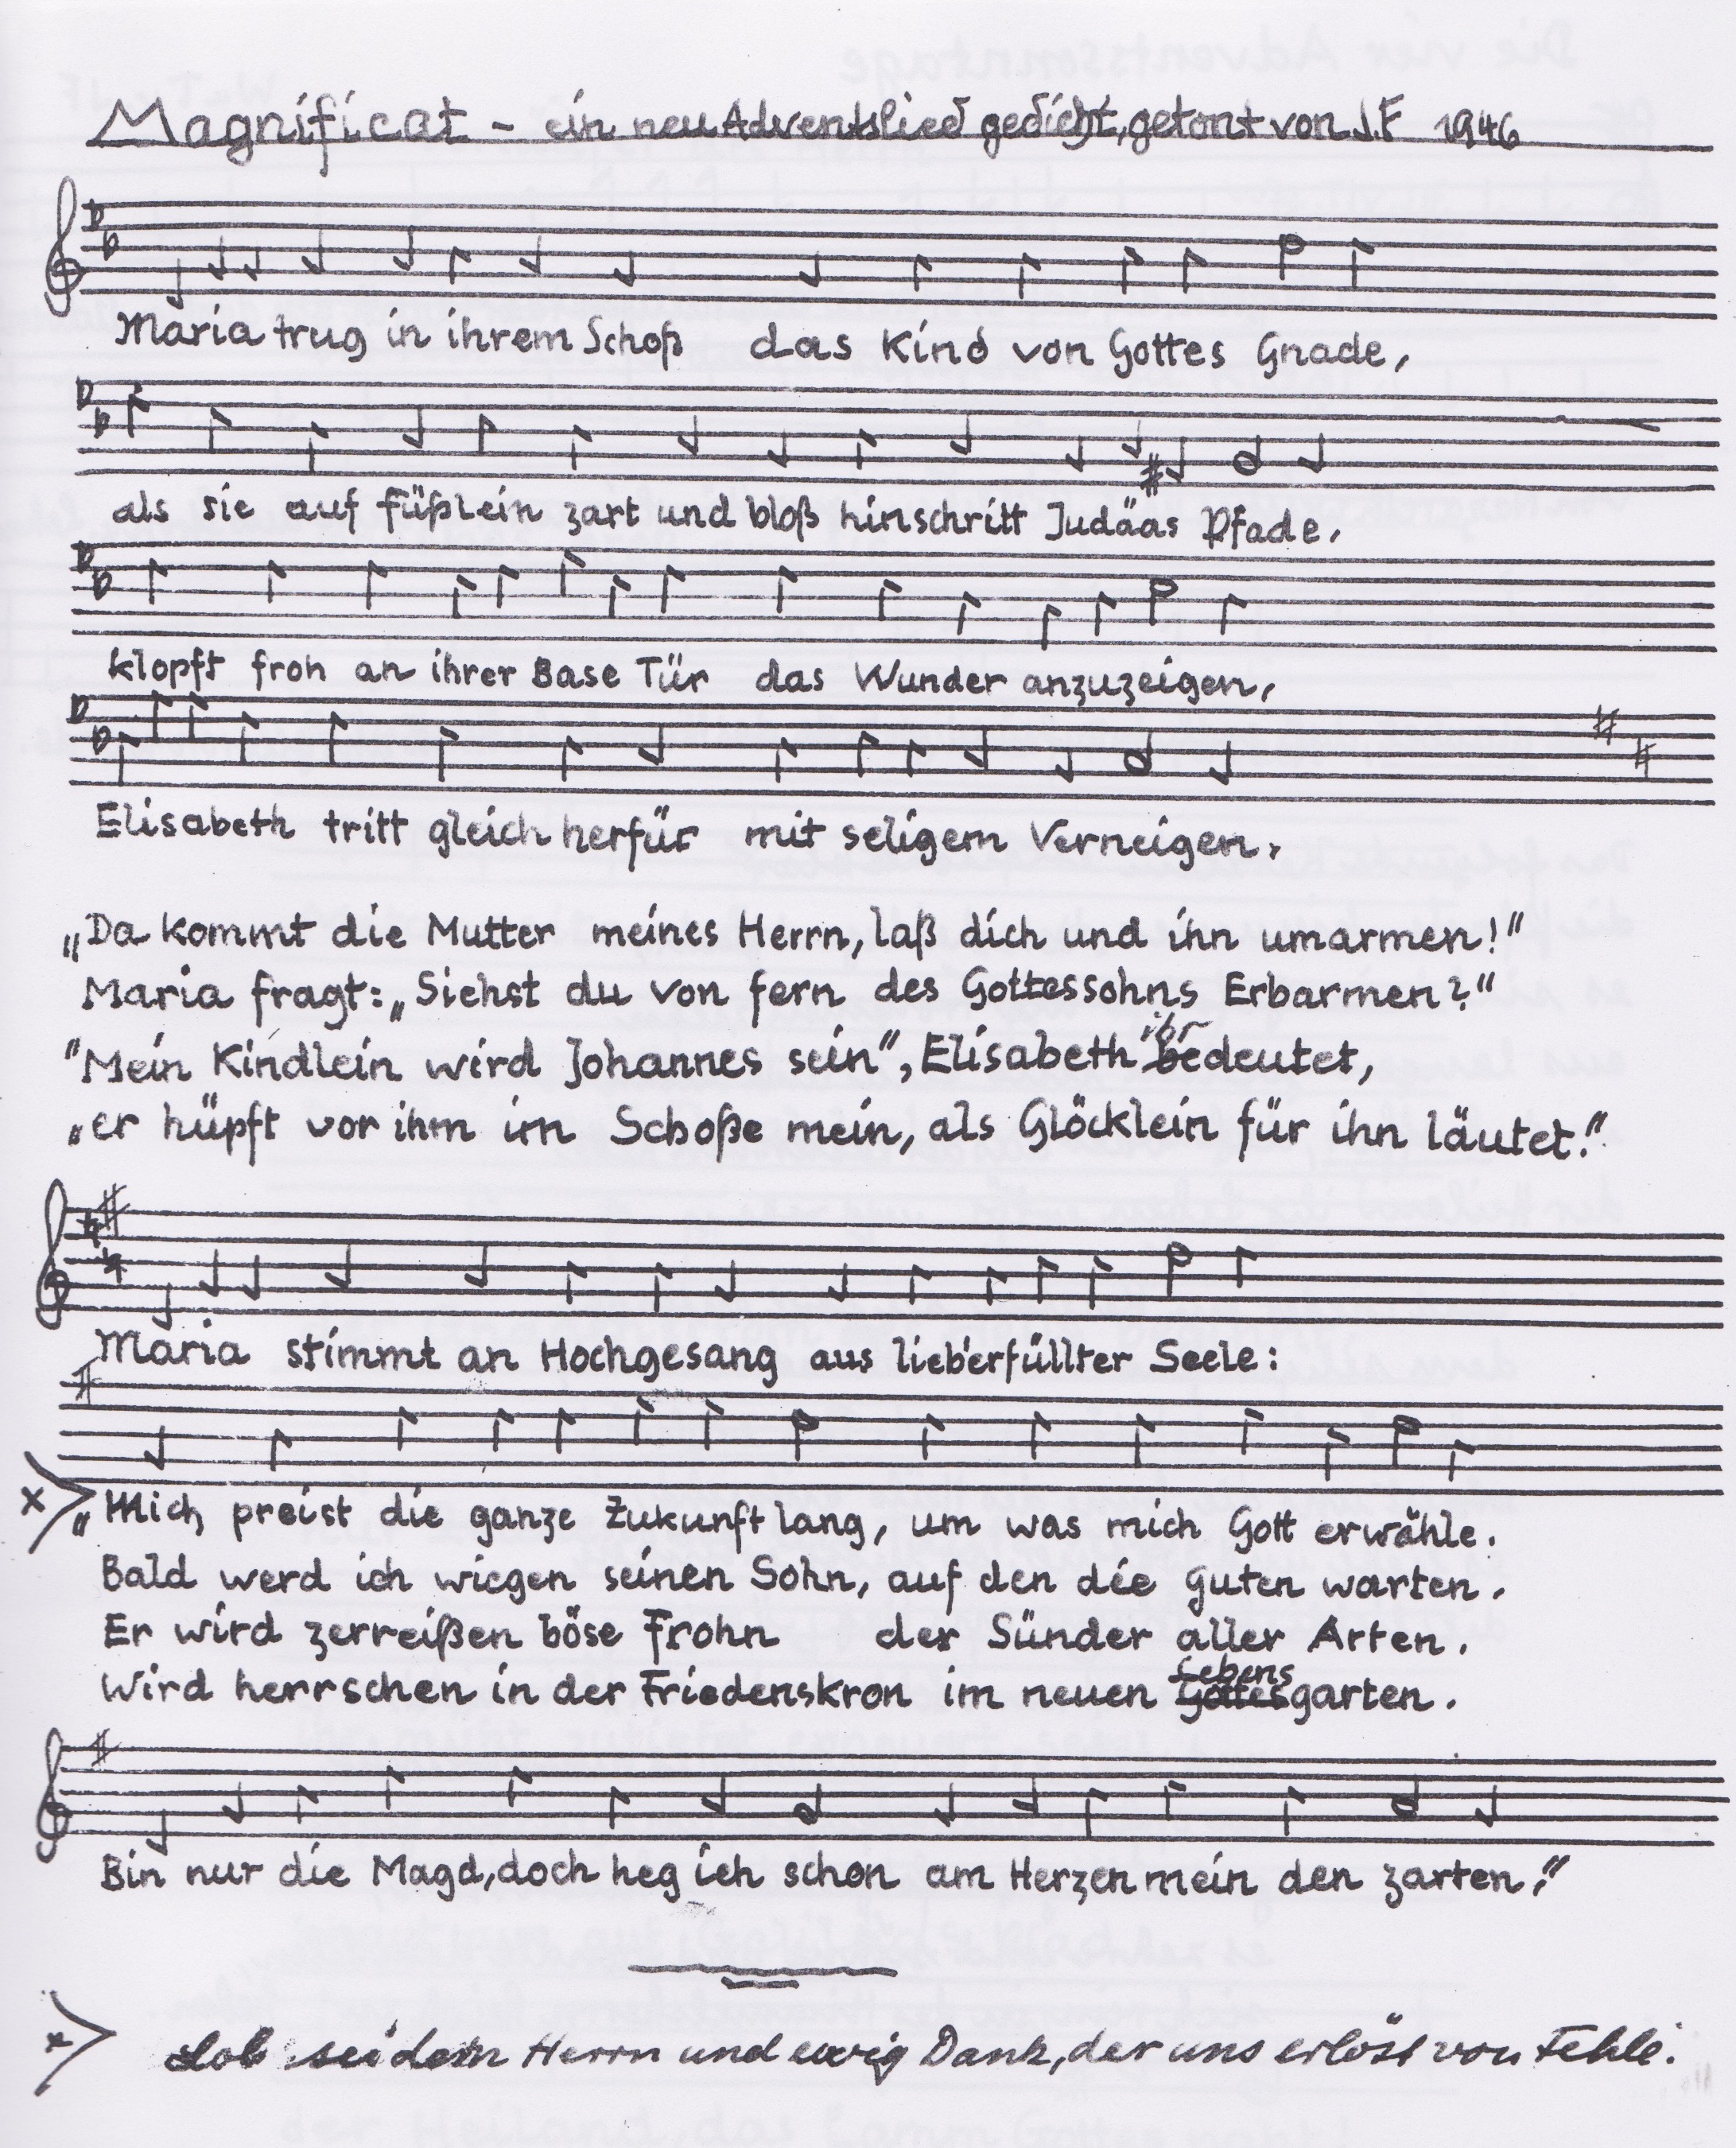 Magnificat - ein neu Adventslied gedicht, getont von J.F 1946
Maria trug in ihrem Schoß das Kind von Gottes Gnade,
als sie auf Füßlein zart und bloß hinschritt Judäas Pfade.
Klopft froh an ihrer Base Tür das Wunder anzuzeigen,
Elisabeth tritt gleich herfür mit seligem Verneigen.
„Da kommt die Mutter meines Herrn, laß dich und ihn umarmen!"
Maria fragt: „Siehst du von fern des Gottessohns Erbarmen?"
"Mein Kindlein wird Johannes sein", Elisabeth ihr bedeutet,
„er hüpft vor ihm im Schoße mein, als Glöcklein für ihn läutet!"
Maria stimmt an Hochgesang aus lieberfüllter Seele:
x „Mich preist die ganze Zukunft lang, um was mich Gott erwähle.
Bald werd ich wiegen seinen Sohn, auf den die Guten warten.
Er wird zerreißen böse Frohn der Sünder aller Arten.
Lebens
Wird herrschen in der Friedenskron im neuen Gottesgarten.
Bin nur die Magd, doch heg ich schon am Herzen mein den zarten."
x Lob sei dem Herrn und ewig Dank, der uns erlöst von Fehle.